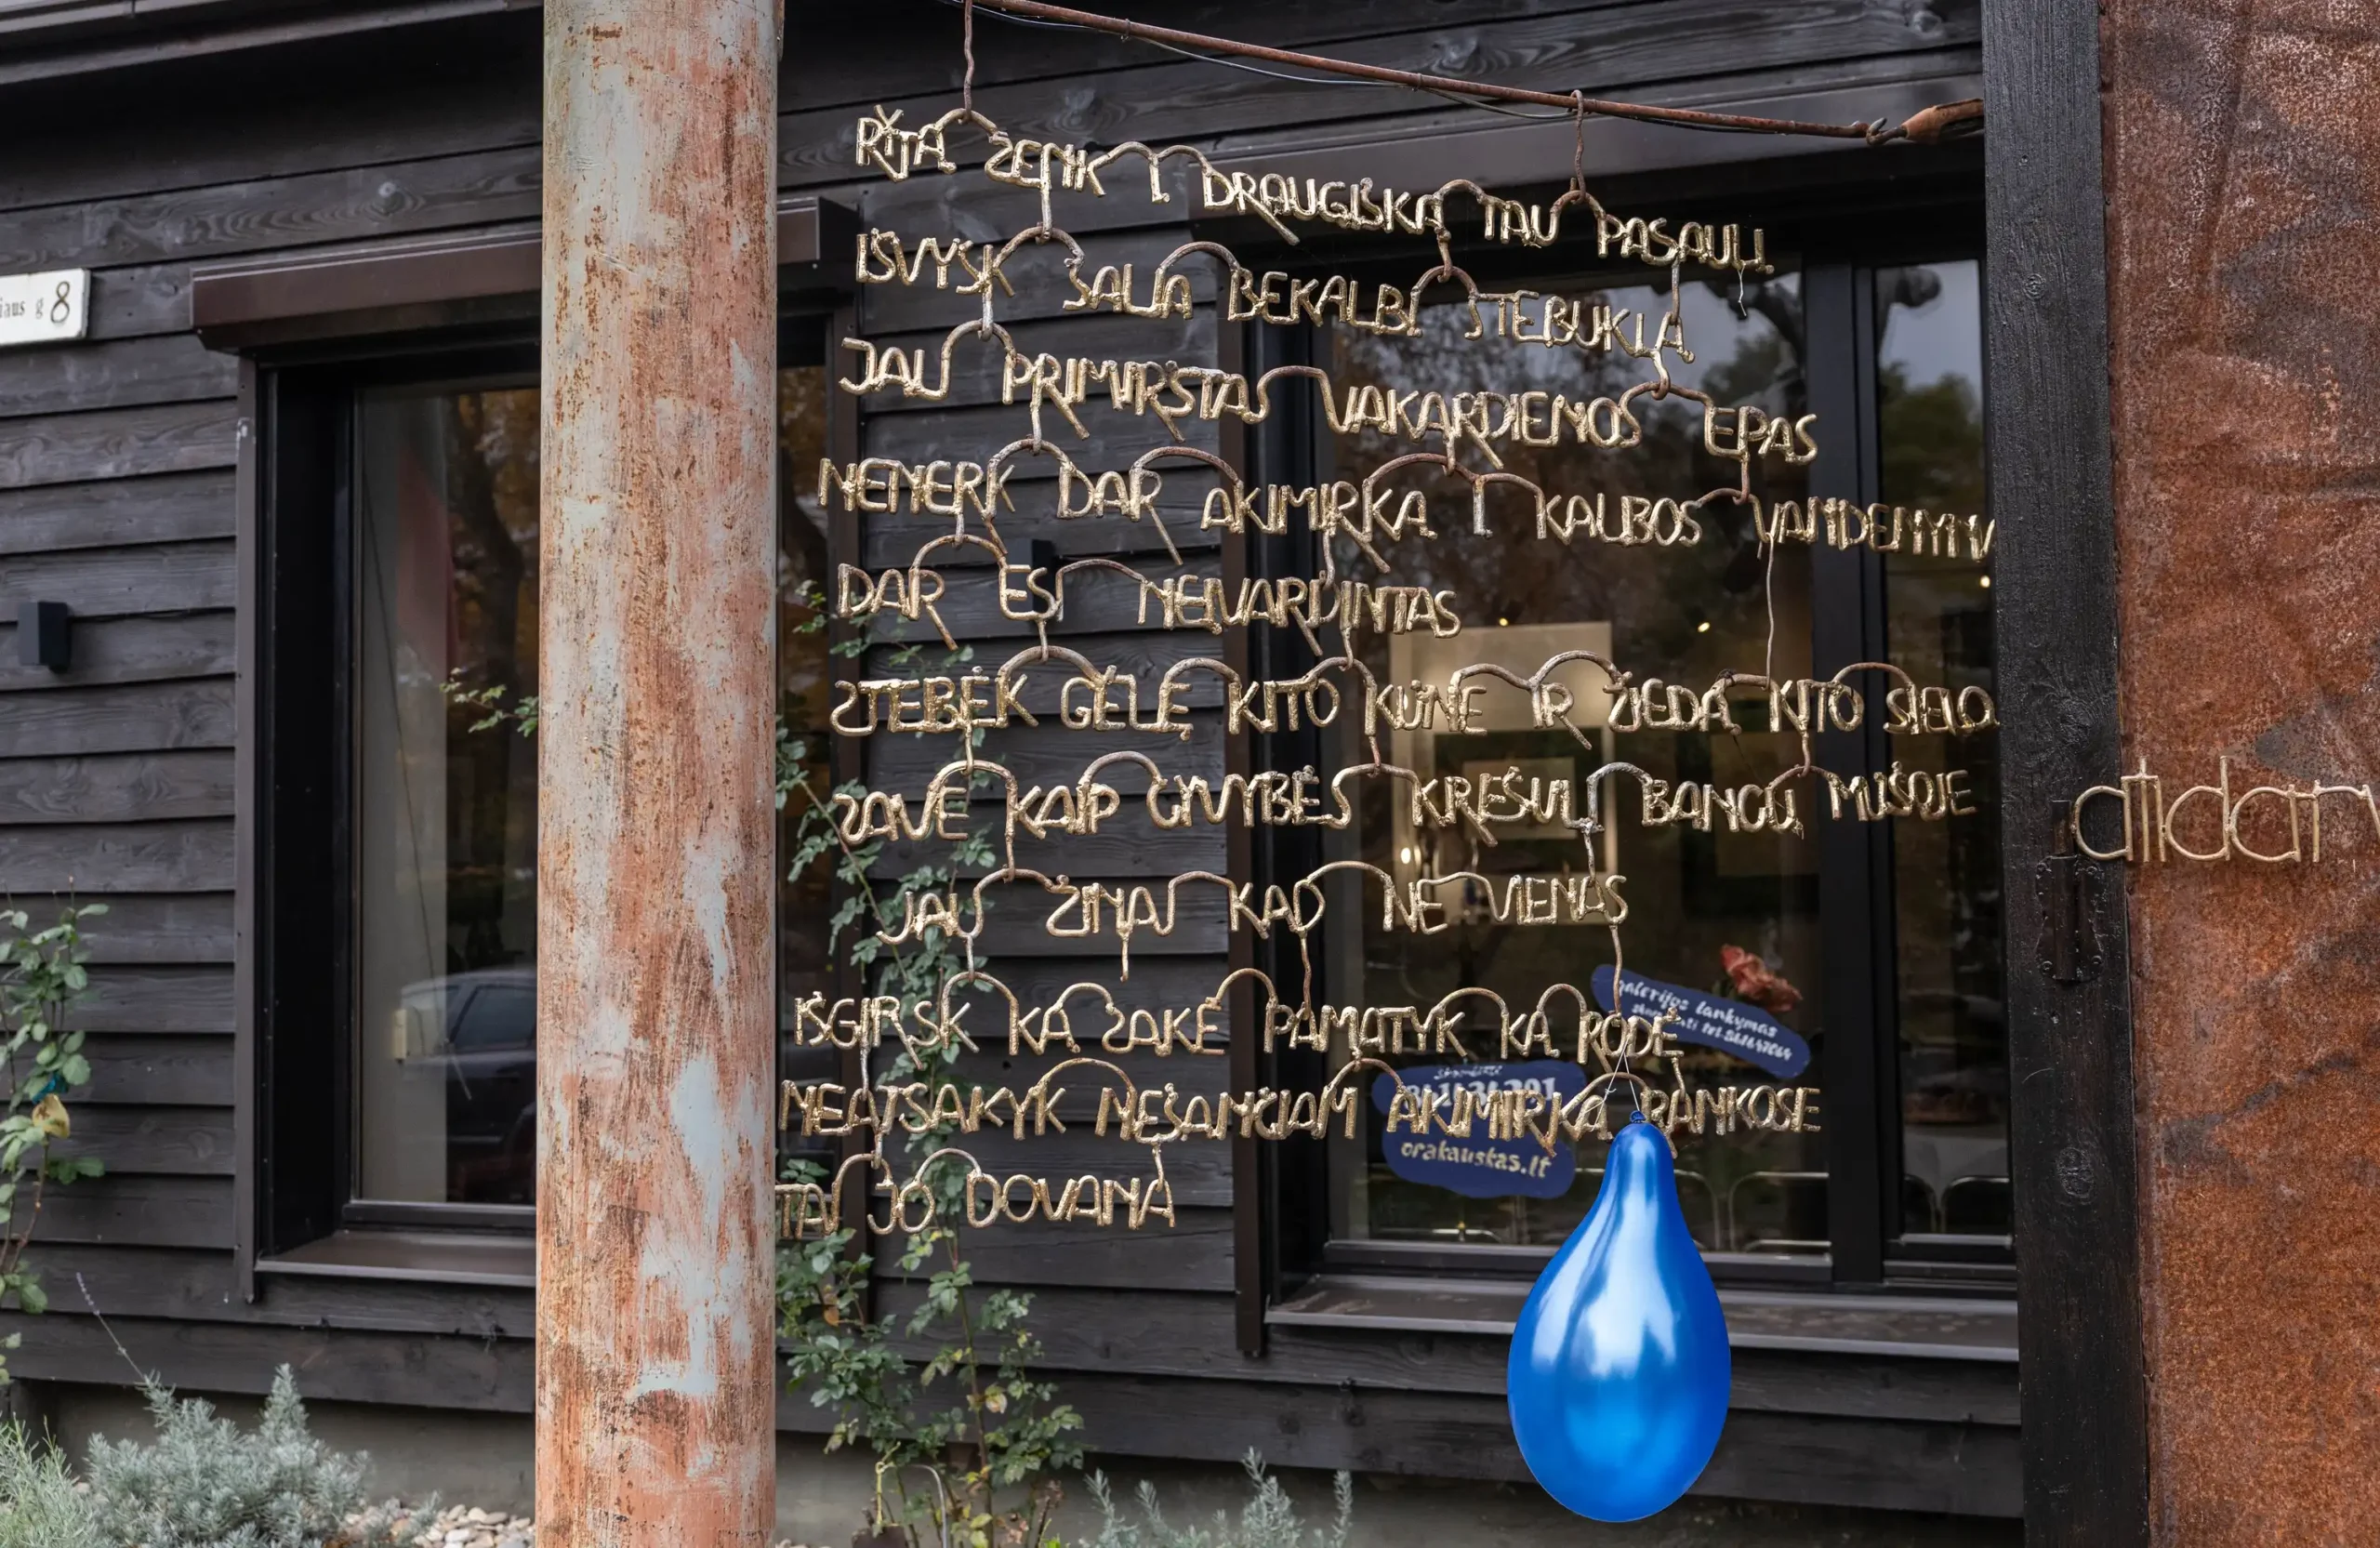 iaus g 8
RYTĄ ŽENK Į DRAUGIŠKĄ TAU PASAULĮ
IŠVYSK ŠALIA BEKALBĮ STEBUKLĄ
JAU PRIMIRŠTAS VAKARDIENOS EPAS
NENERK DAR AKIMIRKĄ Į KALBOS VANDENYNĄ
DAR ESI NEĮVARDINTAS
STEBĖK GĖLĘ KITO KŪNE IR ŽIEDĄ KITO SIELO
SAVE KAIP GYVYBĖS KREŠULĮ BANGŲ MŪŠOJE
JAU ŽINAI KAD NE VIENAS
IŠGIRSK KĄ SAKĖ PAMATYK KĄ RODĖ
NEATSAKYK NEŠANČIAM AKIMIRKĄ RANKOSE
TAI JO DOVANA
atidar
galerijos lankymas
orakauskas.lt